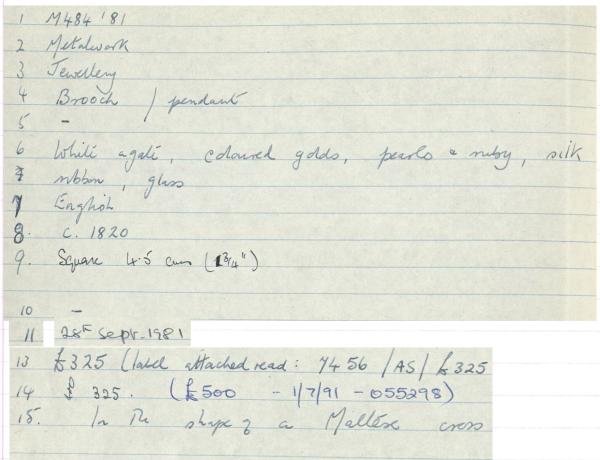 1 M484 '81
2 Metalwork
3 Jewellery
4 Brooch / pendant
5 -
6 White agate, coloured golds, pearls & ruby, silk
7 ribbon, glass
7 English
8. c. 1820
9. Square 4.5 cms (1 3/4")
10 -
11 28th Sept. 1981
13 £325 (label attached read: 7456 /AS/ £325
14 £ 325. (£500 - 1/7/91 - 055298)
15. In the shape of a Maltese cross